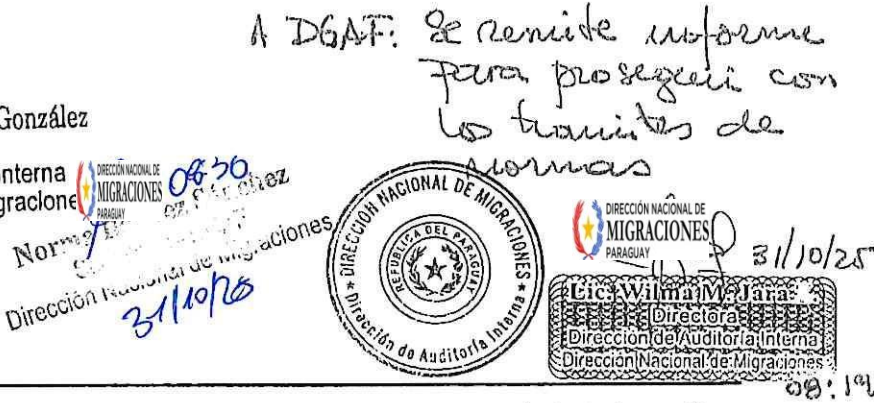 A DGAF: Se remite informe
para proseguir con
los tramites de
normas
González
nterna
gracione
DIRECCIÓN NACIONAL DE
MIGRACIONES
PARAGUAY
0830
Norma
Dirección Nacional de Migraciones
31/10/25
DIRECCIÓN NACIONAL DE MIGRACIONES
REPÚBLICA DEL PARAGUAY
Dirección de Auditoría Interna
DIRECCIÓN NACIONAL DE
MIGRACIONES
PARAGUAY
31/10/25
Lic. Wilma M. Jara
Directora
Dirección de Auditoría Interna
Dirección Nacional de Migraciones